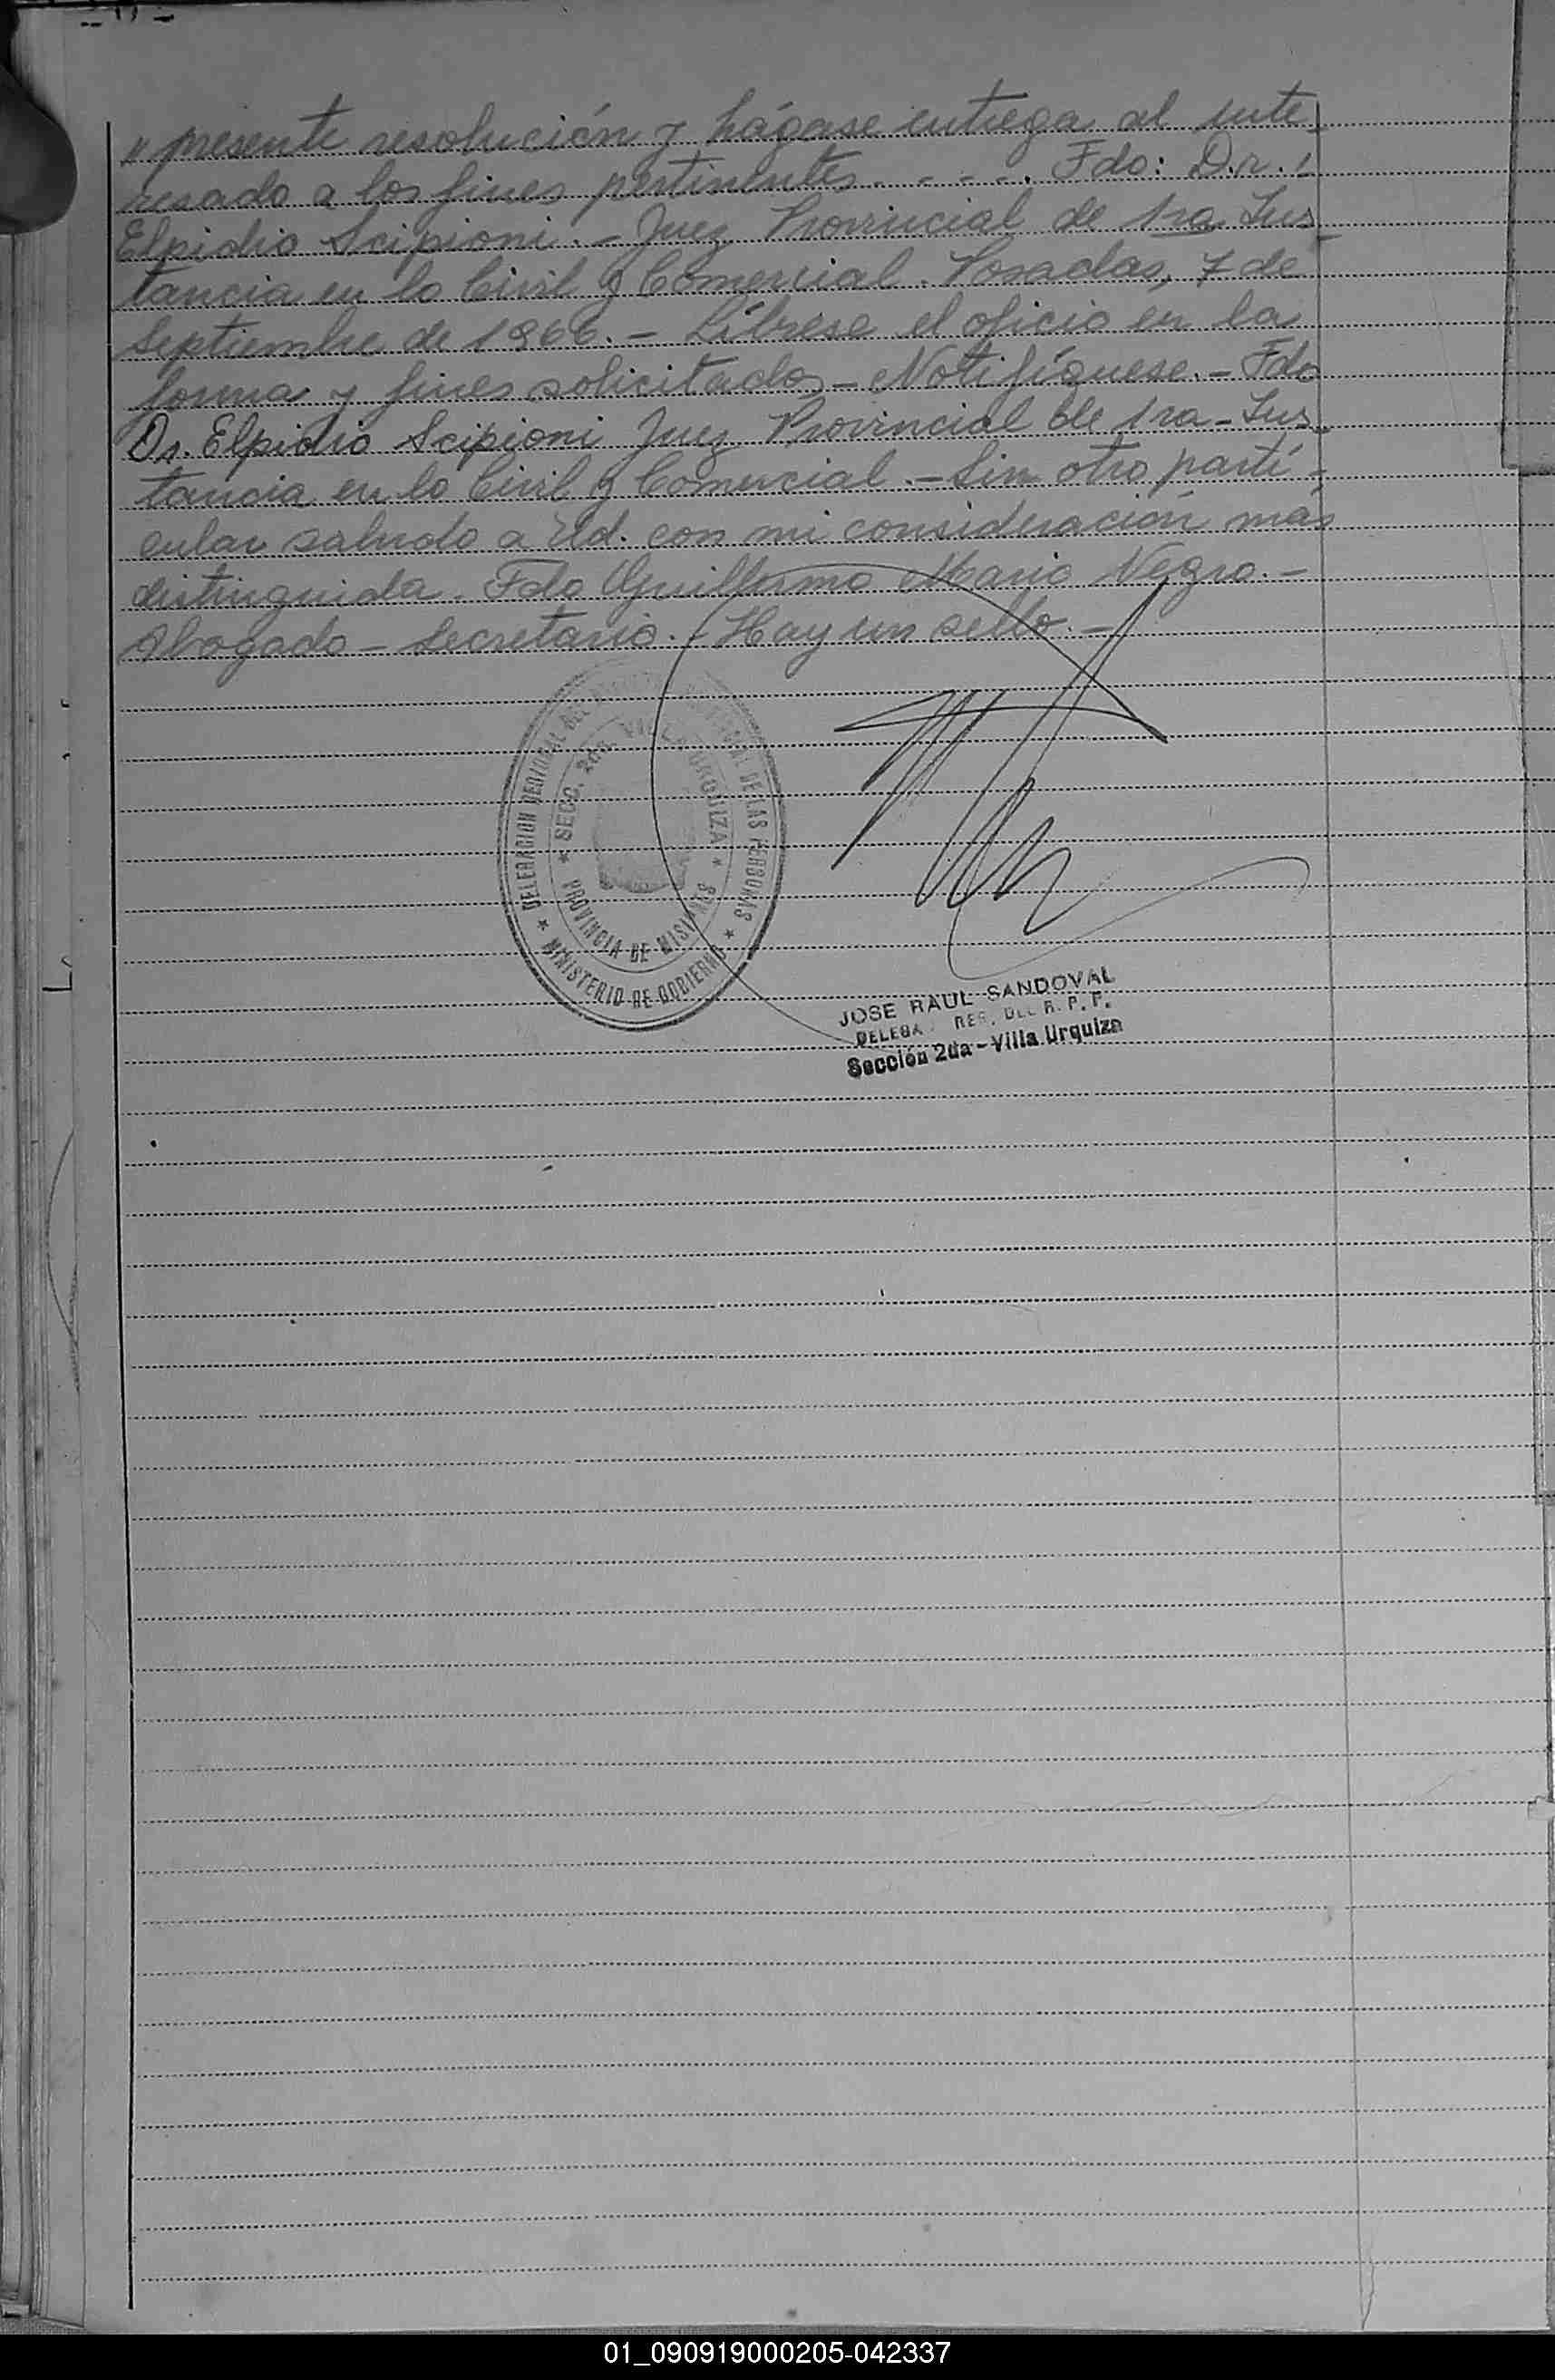 " presente resolución y hágase entrega al inte-
resado a los fines pertinentes. - - - . Fdo: D.r.
Elpidio Scipioni. - Juez Provincial de 1ra Ins-
tancia en lo Civil y Comercial. Posadas, 7 de
Septiembre de 1966. - Líbrese el oficio en la
forma y fines solicitados - Notifíquese. - Fdo
Dr. Elpidio Scipioni Juez Provincial de 1ra - Ins-
tancia en lo Civil y Comercial. - Sin otro parti-
cular saludo a Ud. con mi consideración más
distinguida. Fdo Guillermo Mario Negro. -
Abogado - Secretario. - Hay un sello. -
DELEGACION REGIONAL DEL DE LAS PERSONAS
★ MINISTERIO DE GOBIERNO ★
★ SECC. 2da. VILLA URQUIZA ★
PROVINCIA DE MISIONES
JOSE RAUL SANDOVAL
DELEGA. REG. DEL R. P. P.
Sección 2da - Villa Urquiza
01_090919000205-042337